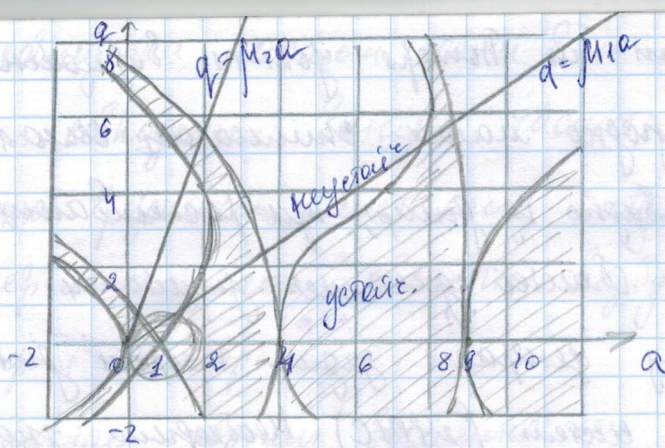 q
8
q = μ₂a
q = μ₁a
6
неустойч
4
2
устойч.
-2
0
1
2
4
6
8
9
10
a
-2